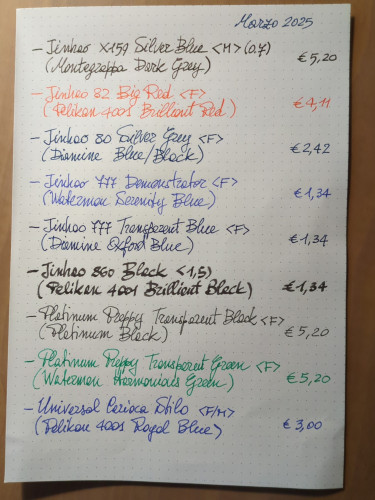 Marzo 2025
- Jinhao X159 Silver Blue <M> (0,7) €5,20
(Montegrappa Dark Grey)
- Jinhao 82 Big Red <F> €4,11
(Pelikan 4001 Brilliant Red)
- Jinhao 80 Silver Grey <F> €2,42
(Diamine Blue/Black)
- Jinhao 777 Demonstrator <F> €1,34
(Waterman Serenity Blue)
- Jinhao 777 Transparent Blue <F> €1,34
(Diamine Oxford Blue)
- Jinhao 860 Black <1,5> €1,34
(Pelikan 4001 Brilliant Black)
- Platinum Preppy Transparent Black <F> €5,20
(Platinum Black)
- Platinum Preppy Transparent Green <F> €5,20
(Waterman Harmonious Green)
- Universal Carioca Stilo <F/M> €3,00
(Pelikan 4001 Royal Blue)